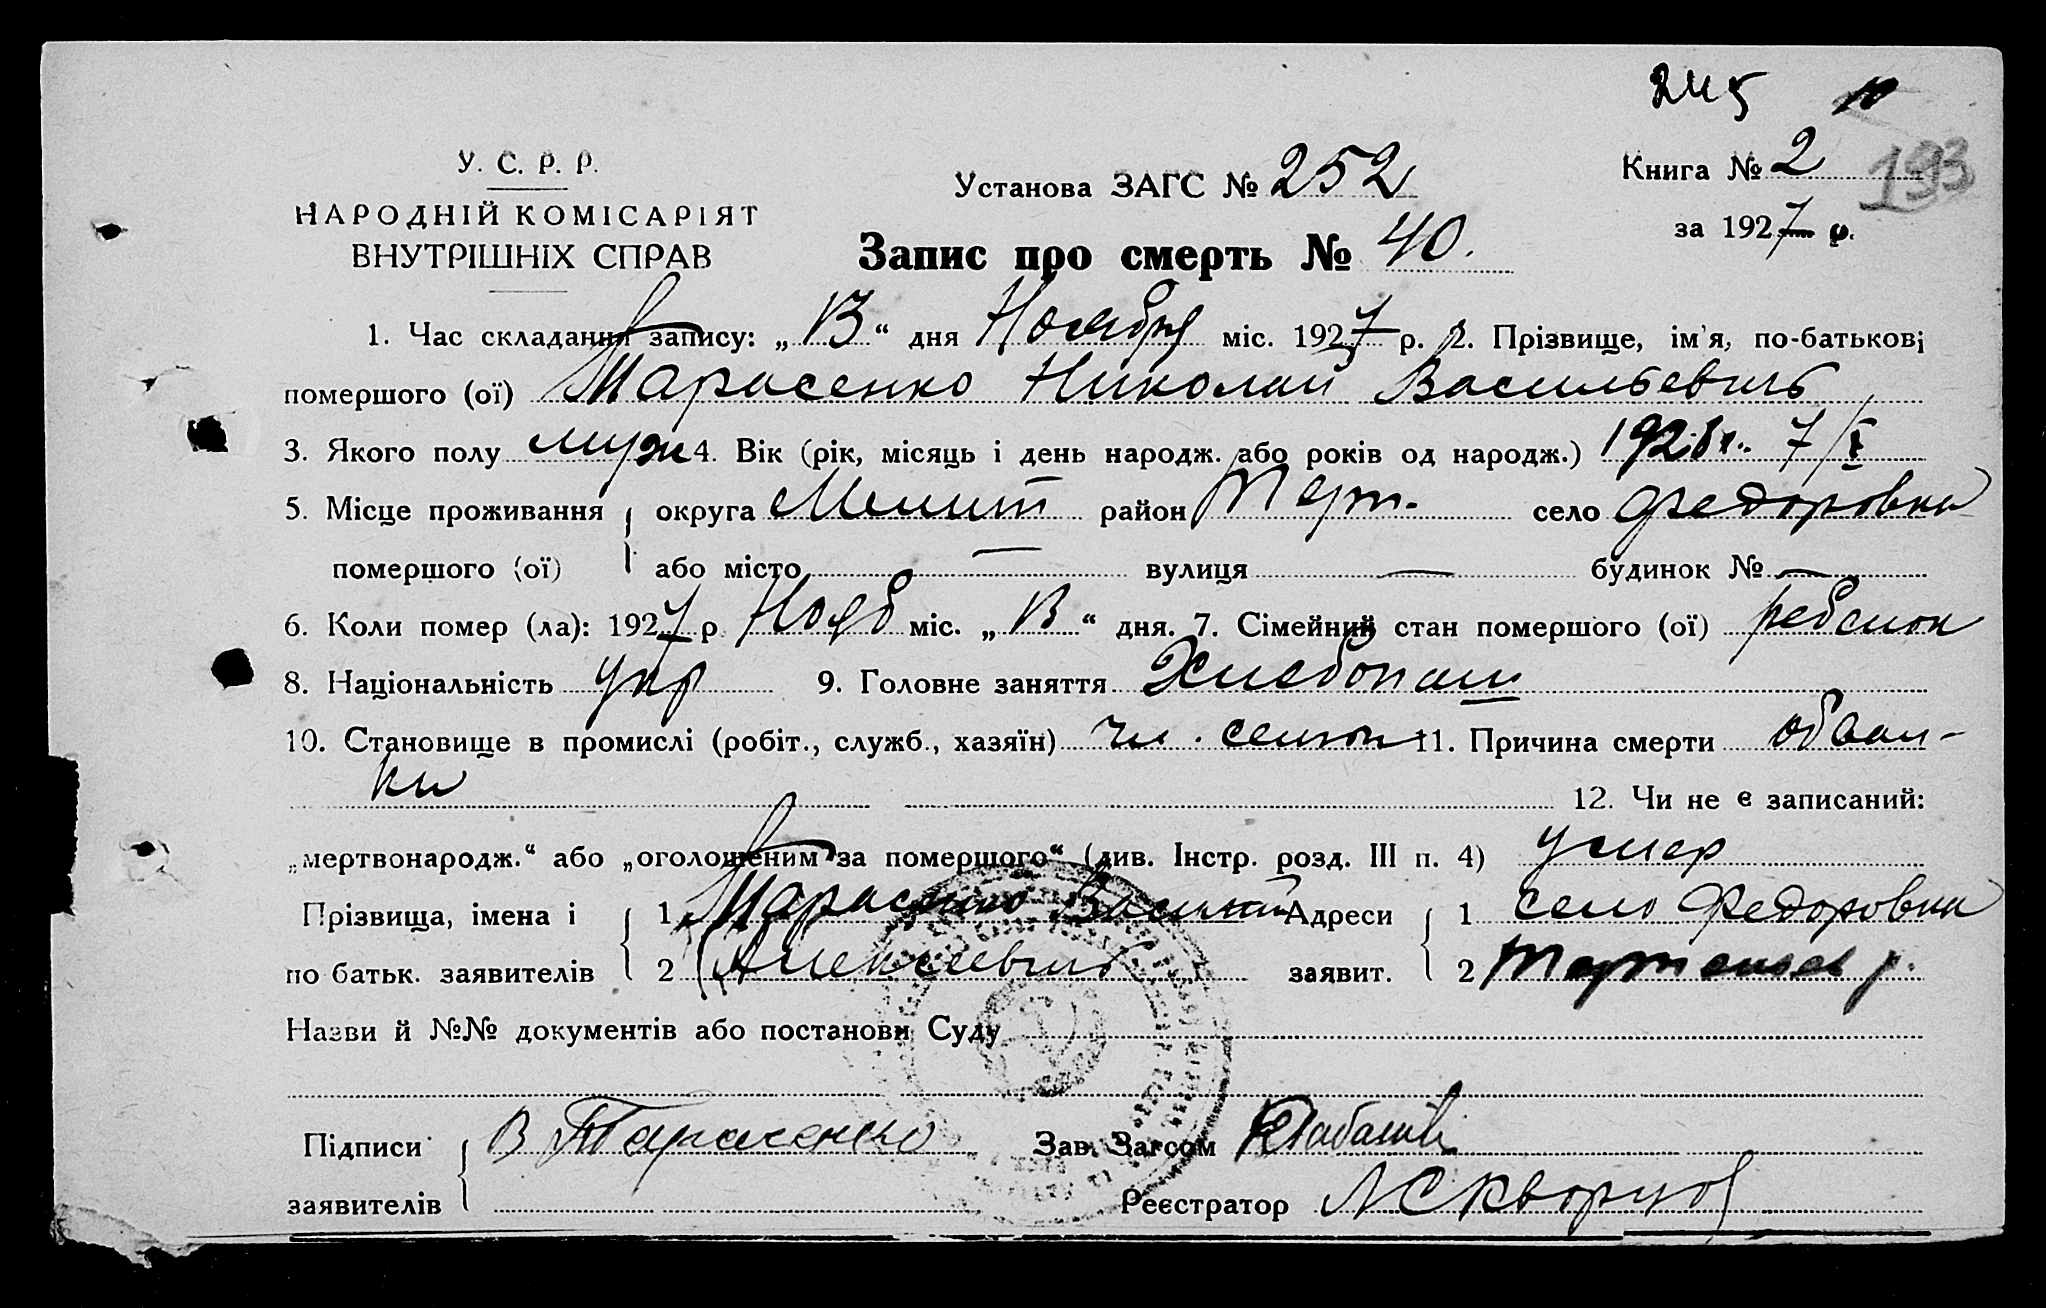 245
У. С. Р. Р.
НАРОДНІЙ КОМІСАРІЯТ
ВНУТРІШНІХ СПРАВ
Установа ЗАГС № 252
Книга № 2 193
за 1927 р.
Запис про смерть № 40.
1. Час складання запису: „ 13 “ дня Ноября міс. 1927 р. 2. Прізвище, ім'я, по-батькові
помершого (ої) Тарасенко Николай Васильевичъ
3. Якого полу муж 4. Вік (рік, місяць і день народж. або років од народж.) 1926 г. 7/X
5. Місце проживання округа Мелит район Терп. село Федоровка
помершого (ої) або місто — вулиця — будинок № —
6. Коли помер (ла): 1927 р. Нояб міс. „ 13 “ дня. 7. Сімейний стан помершого (ої) ребенок
8. Національність укр 9. Головне заняття Хлебопаш
10. Становище в промислі (робіт., служб., хазяїн) чл. семьи 11. Причина смерти
12. Чи не є записаний:
„мертвонародж.“ або „оголошеним за помершого“ (див. Інстр. розд. III п. 4) умер
Прізвища, імена і 1 Тарасенко Василий Адреси 1 село Федоровка
по батьк. заявителів 2 Алексеевичъ заявит. 2 р.
Назви й №№ документів або постанови Суду
Підписи В Тарасенко Зав. Загсом
заявителів Реєстратор Скворцов